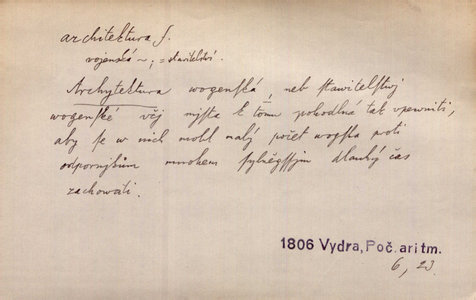 architektura f.
vojenská ~; = stavitelství.
Archytektura wogenská, neb stawitelstwj
wogenské včj mjsta k tomu pohodlná tak vpewniti,
aby se w nich mohl malý počet wojska proti
odpornjkům mnohem sylněgssjm dlauhý čas
zachowati.
1806 Vydra, Poč. aritm.
6, 23.